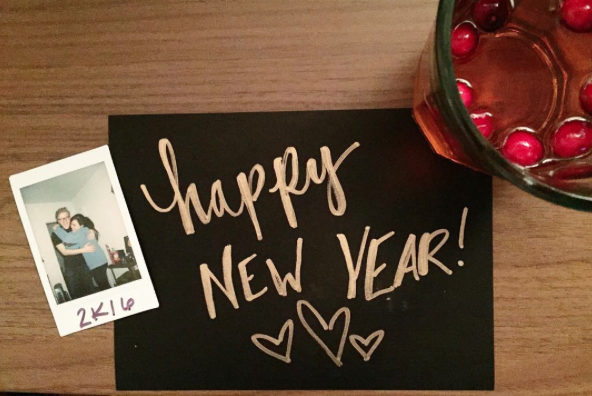 happy
NEW YEAR!
2K16